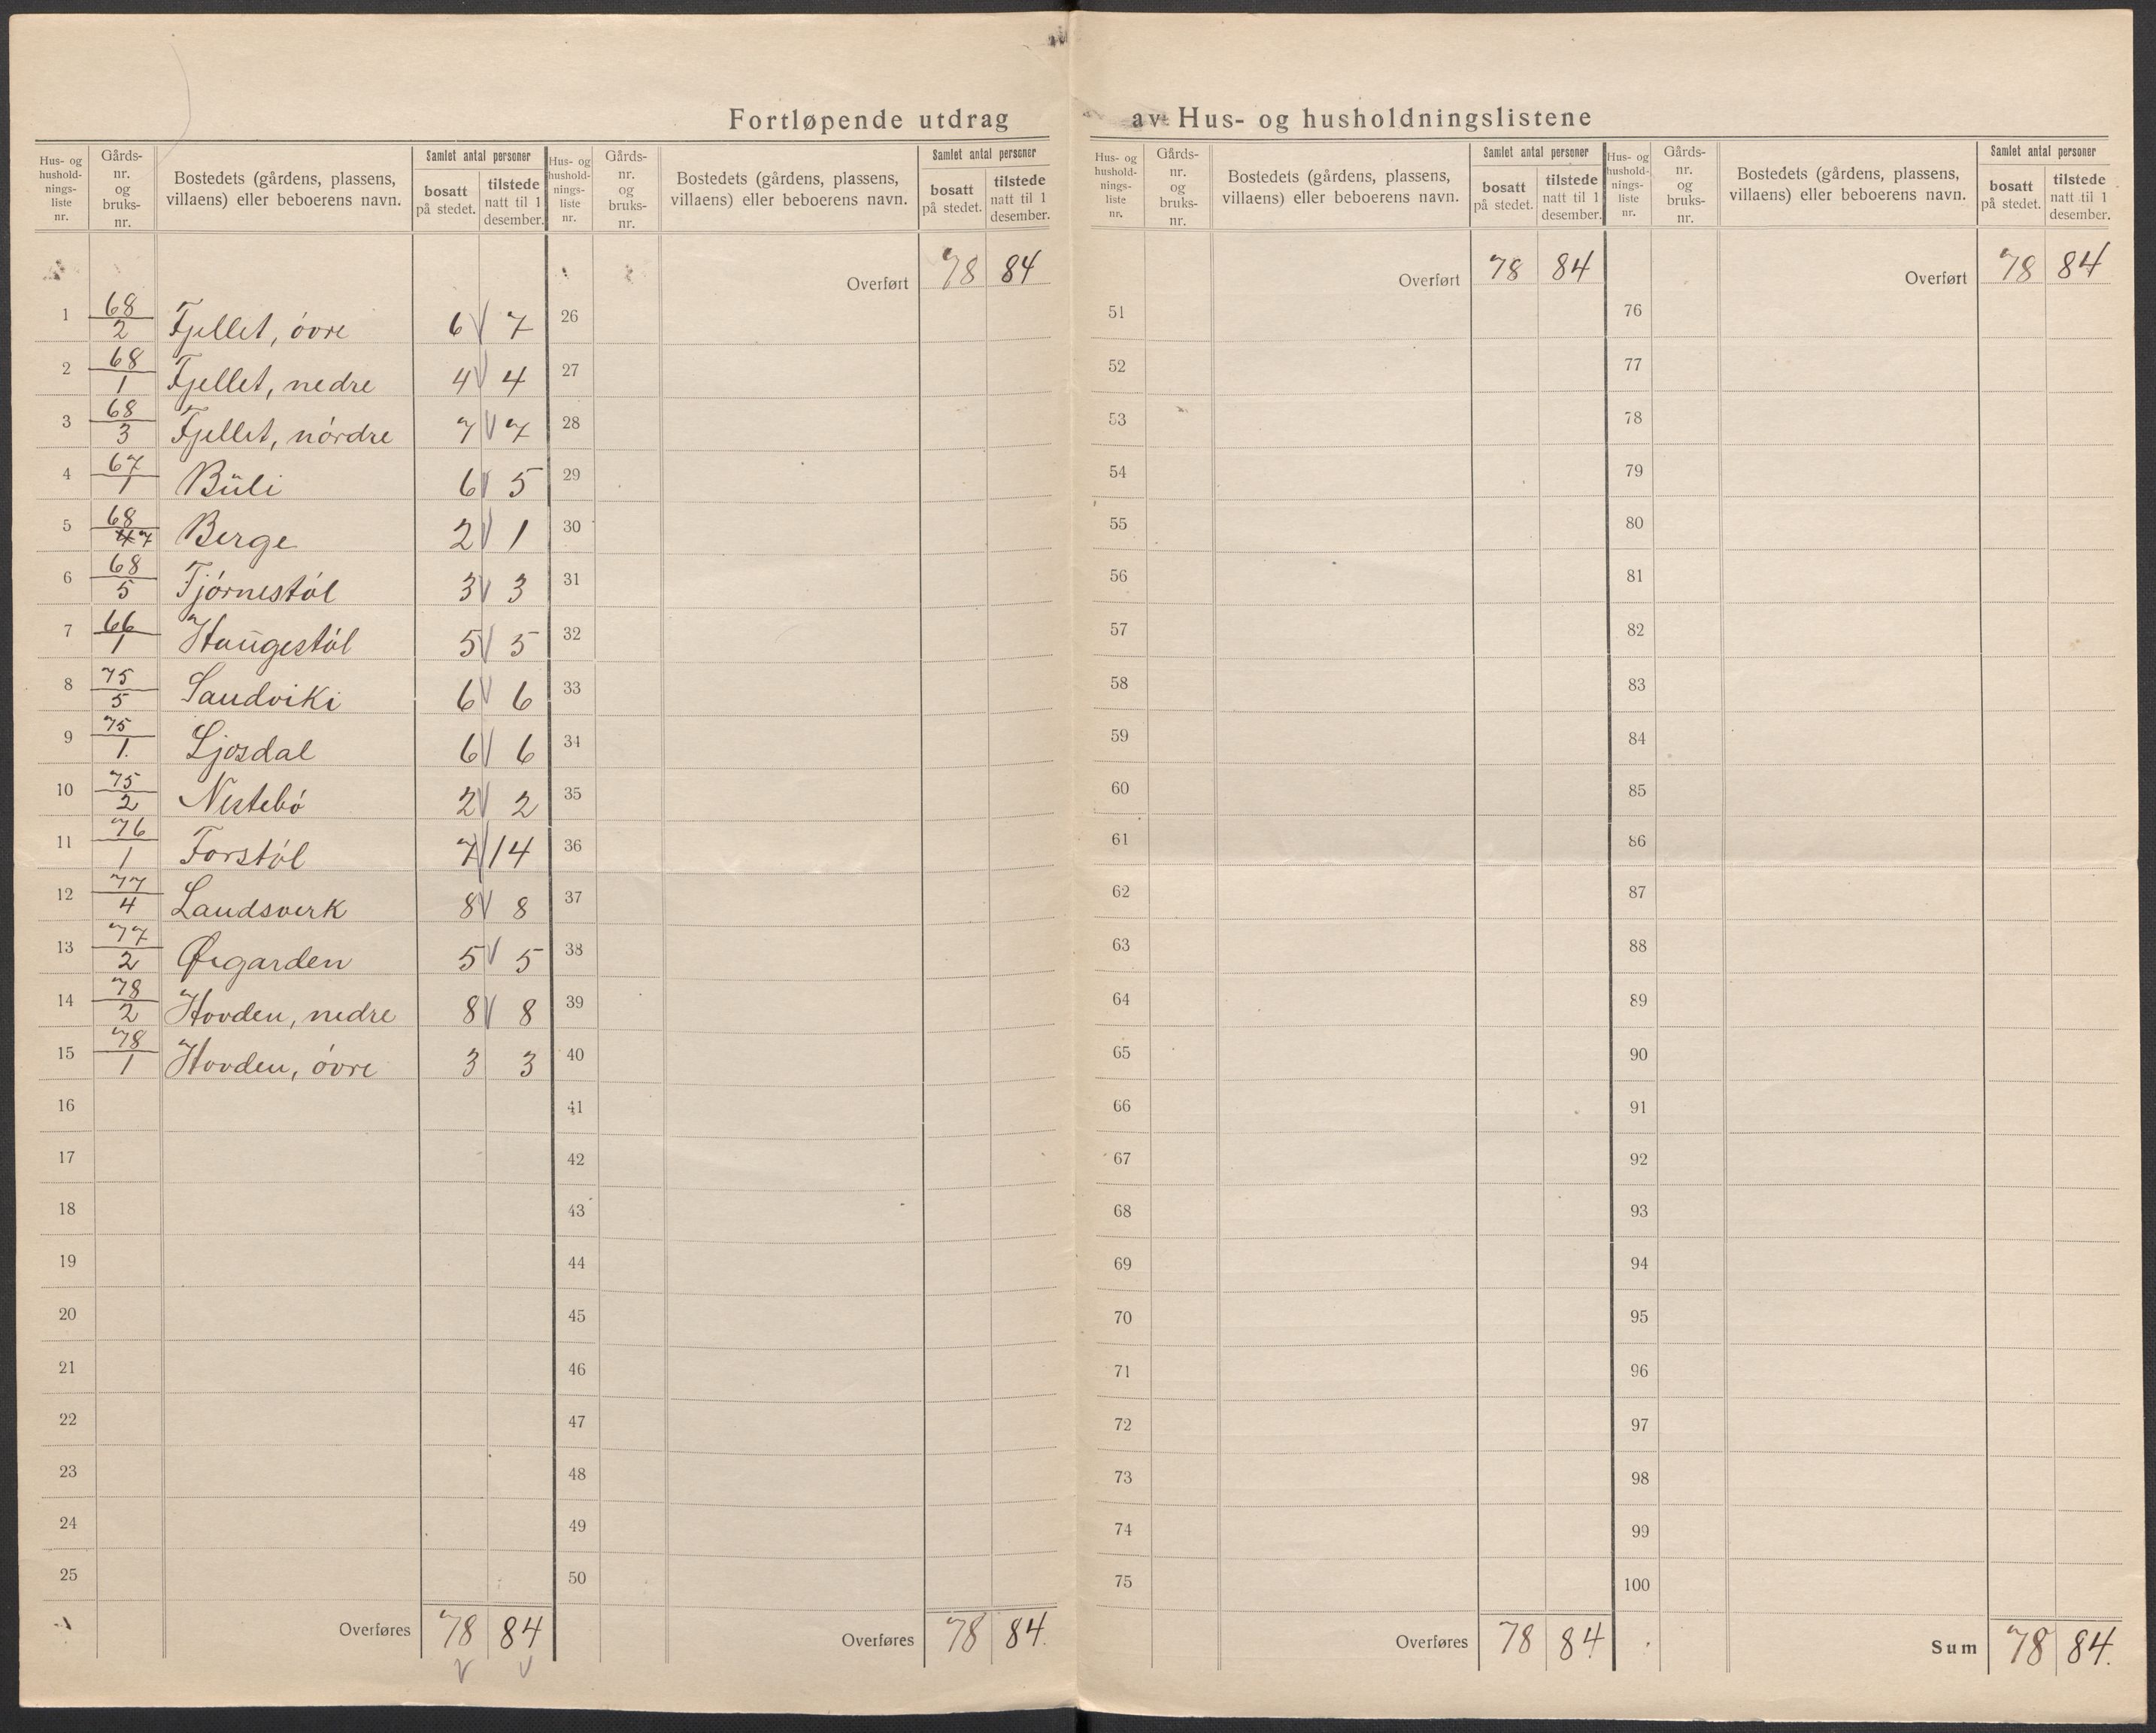 Fortløpende utdrag av Hus- og husholdningslistene
Hus- og hushold-nings-liste nr. | Gårds-nr. og bruks-nr. | Bostedets (gårdens, plassens, villaens) eller beboerens navn. | Samlet antal personer | bosatt på stedet. | tilstede natt til 1 desember.
1 68/2 Fjellet, óvre 6 7
2 68/1 Fjellet, nedre 4 4
3 68/3 Fjellet, nórdre 7 7
4 67/1 Búli 6 5
5 68/4 7 Berge 2 1
6 68/5 Tjórnestól 3 3
7 66/1 Haugestól 5 5
8 75/5 Sandviki 6 6
9 75/1. Ljosdal 6 6
10 75/2 Nestebó 2 2
11 76/1 Forstól 7 14
12 77/4 Landsverk 8 8
13 77/2 Øigarden 5 5
14 78/2 Hovden, nedre 8 8
15 78/1 Hovden, óvre 3 3
16
17
18
19
20
21
22
23
24
25
Overføres 78 84
Hus- og hushold-nings-liste nr. | Gårds-nr. og bruks-nr. | Bostedets (gårdens, plassens, villaens) eller beboerens navn. | Samlet antal personer | bosatt på stedet. | tilstede natt til 1 desember.
Overført 78 84
26
27
28
29
30
31
32
33
34
35
36
37
38
39
40
41
42
43
44
45
46
47
48
49
50
Overføres 78 84.
Hus- og hushold-nings-liste nr. | Gårds-nr. og bruks-nr. | Bostedets (gårdens, plassens, villaens) eller beboerens navn. | Samlet antal personer | bosatt på stedet. | tilstede natt til 1 desember.
Overført 78 84
51
52
53
54
55
56
57
58
59
60
61
62
63
64
65
66
67
68
69
70
71
72
73
74
75
Overføres 78 84
Hus- og hushold-nings-liste nr. | Gårds-nr. og bruks-nr. | Bostedets (gårdens, plassens, villaens) eller beboerens navn. | Samlet antal personer | bosatt på stedet. | tilstede natt til 1 desember.
Overført 78 84
76
77
78
79
80
81
82
83
84
85
86
87
88
89
90
91
92
93
94
95
96
97
98
99
100
Sum 78 84.